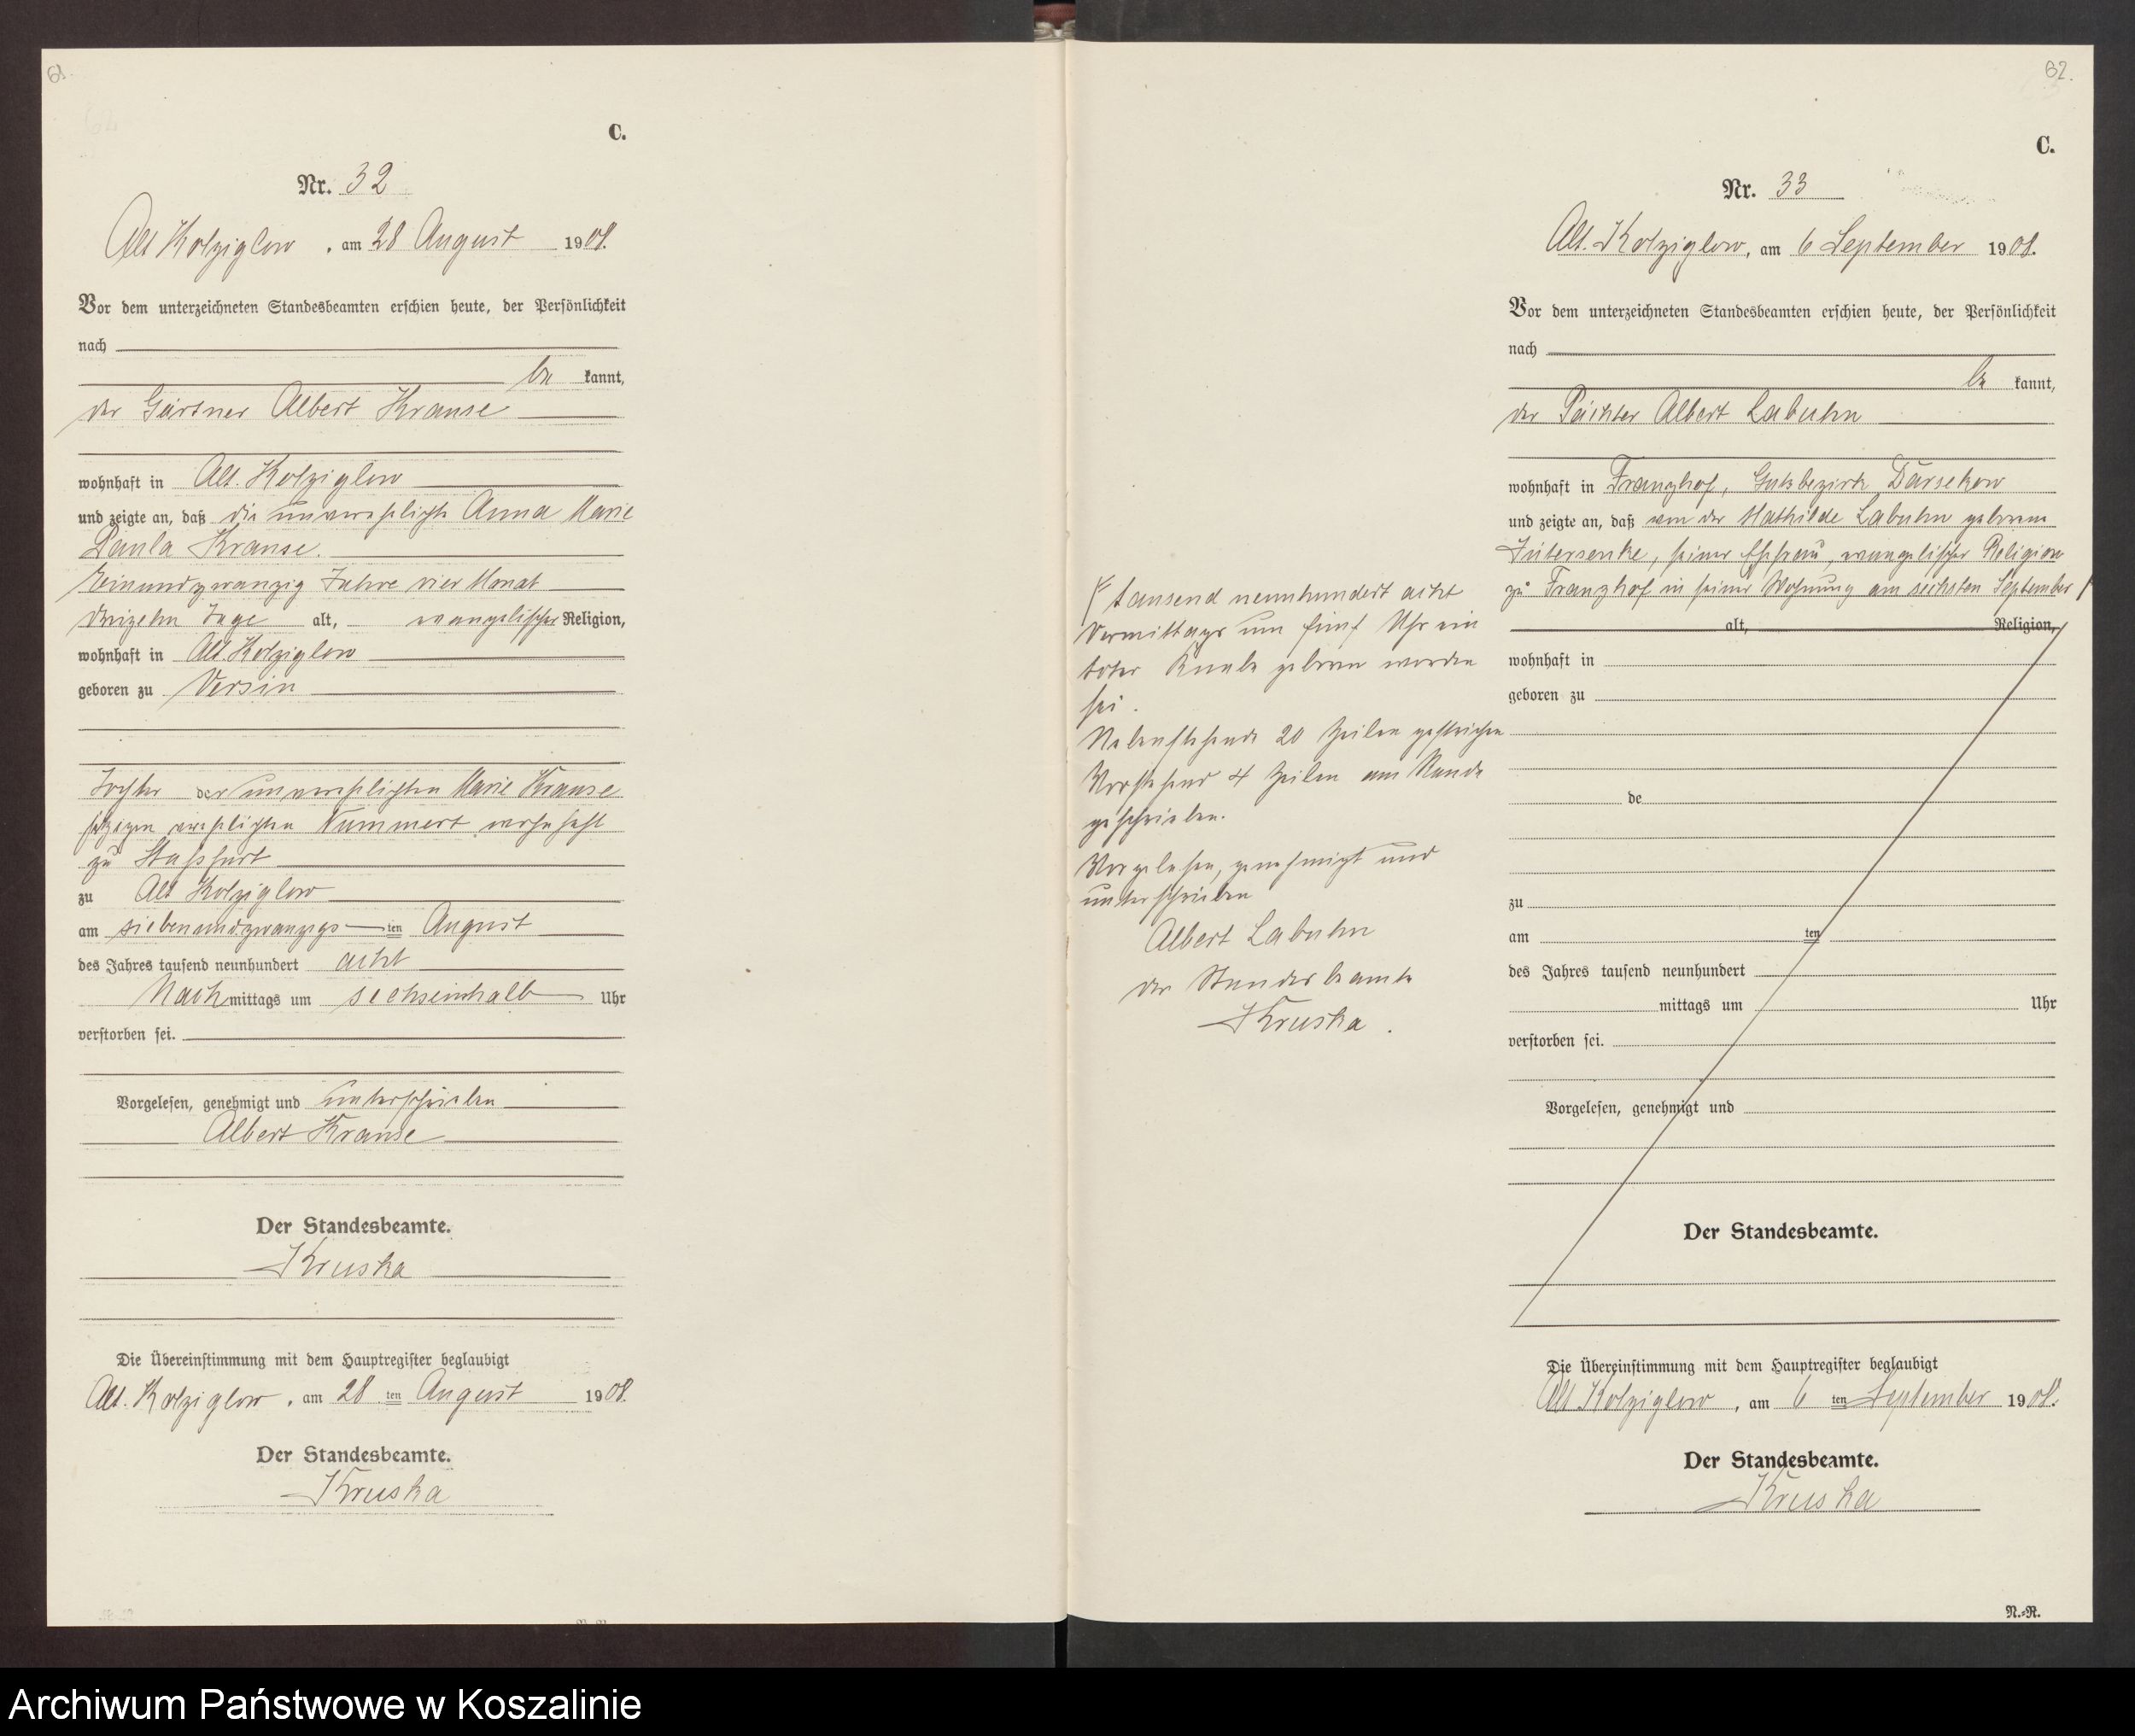 61.
C.
Nr. 32
Alt Kolziglow, am 28 August 1908.
Vor dem unterzeichneten Standesbeamten erschien heute, der Persönlichkeit
nach
be kannt,
der Gärtner Albert Krause
wohnhaft in Alt. Kolziglow
und zeigte an, daß die unverehelichte Anna Marie
Paula Krause.
Einundzwanzig Jahre vier Monat
dreizehn Tage alt, evangelischer Religion,
wohnhaft in Alt. Kolziglow
geboren zu Versin
Tochter der unverehelichten Marie Krause
jetzigen verehelichten Kummert wohnhaft
zu Staßfurt
zu Alt Kolziglow
am siebenundzwanzigs ten August
des Jahres tausend neunhundert acht
Nach mittags um sechseinhalb Uhr
verstorben sei.
Vorgelesen, genehmigt und unterschrieben
Albert Krause
Der Standesbeamte.
Kruska
Die Übereinstimmung mit dem Hauptregister beglaubigt
Alt. Kolziglow, am 28 ten August 1908.
Der Standesbeamte.
Kruska
62.
C.
Nr. 33
Alt. Kolziglow, am 6 September 1908.
Vor dem unterzeichneten Standesbeamten erschien heute, der Persönlichkeit
nach
be kannt,
der Pächter Albert Labuhn
wohnhaft in Franzhof, Gutsbezirk Darsekow
und zeigte an, daß von der Mathilde Labuhn geborene
seiner Ehefrau, evangelischer Religion
zu Franzhof in seiner Wohnung am sechsten September
alt, Religion,
wohnhaft in
geboren zu
de
zu
am ten
des Jahres tausend neunhundert
mittags um Uhr
verstorben sei.
Vorgelesen, genehmigt und
Der Standesbeamte.
Die Übereinstimmung mit dem Hauptregister beglaubigt
Alt Kolziglow, am 6 ten September 1908.
Der Standesbeamte.
Kruska
N.-R.
tausend neunhundert acht
Vormittags um fünf Uhr ein
toter Knabe geboren worden
sei.
Nebenstehende 20 Zeilen gestrichen
Vorstehend 4 Zeilen am Rande
geschrieben.
Vorgelesen, genehmigt und
unterschrieben
Albert Labuhn
der Standesbeamte
Kruska.
Archiwum Państwowe w Koszalinie